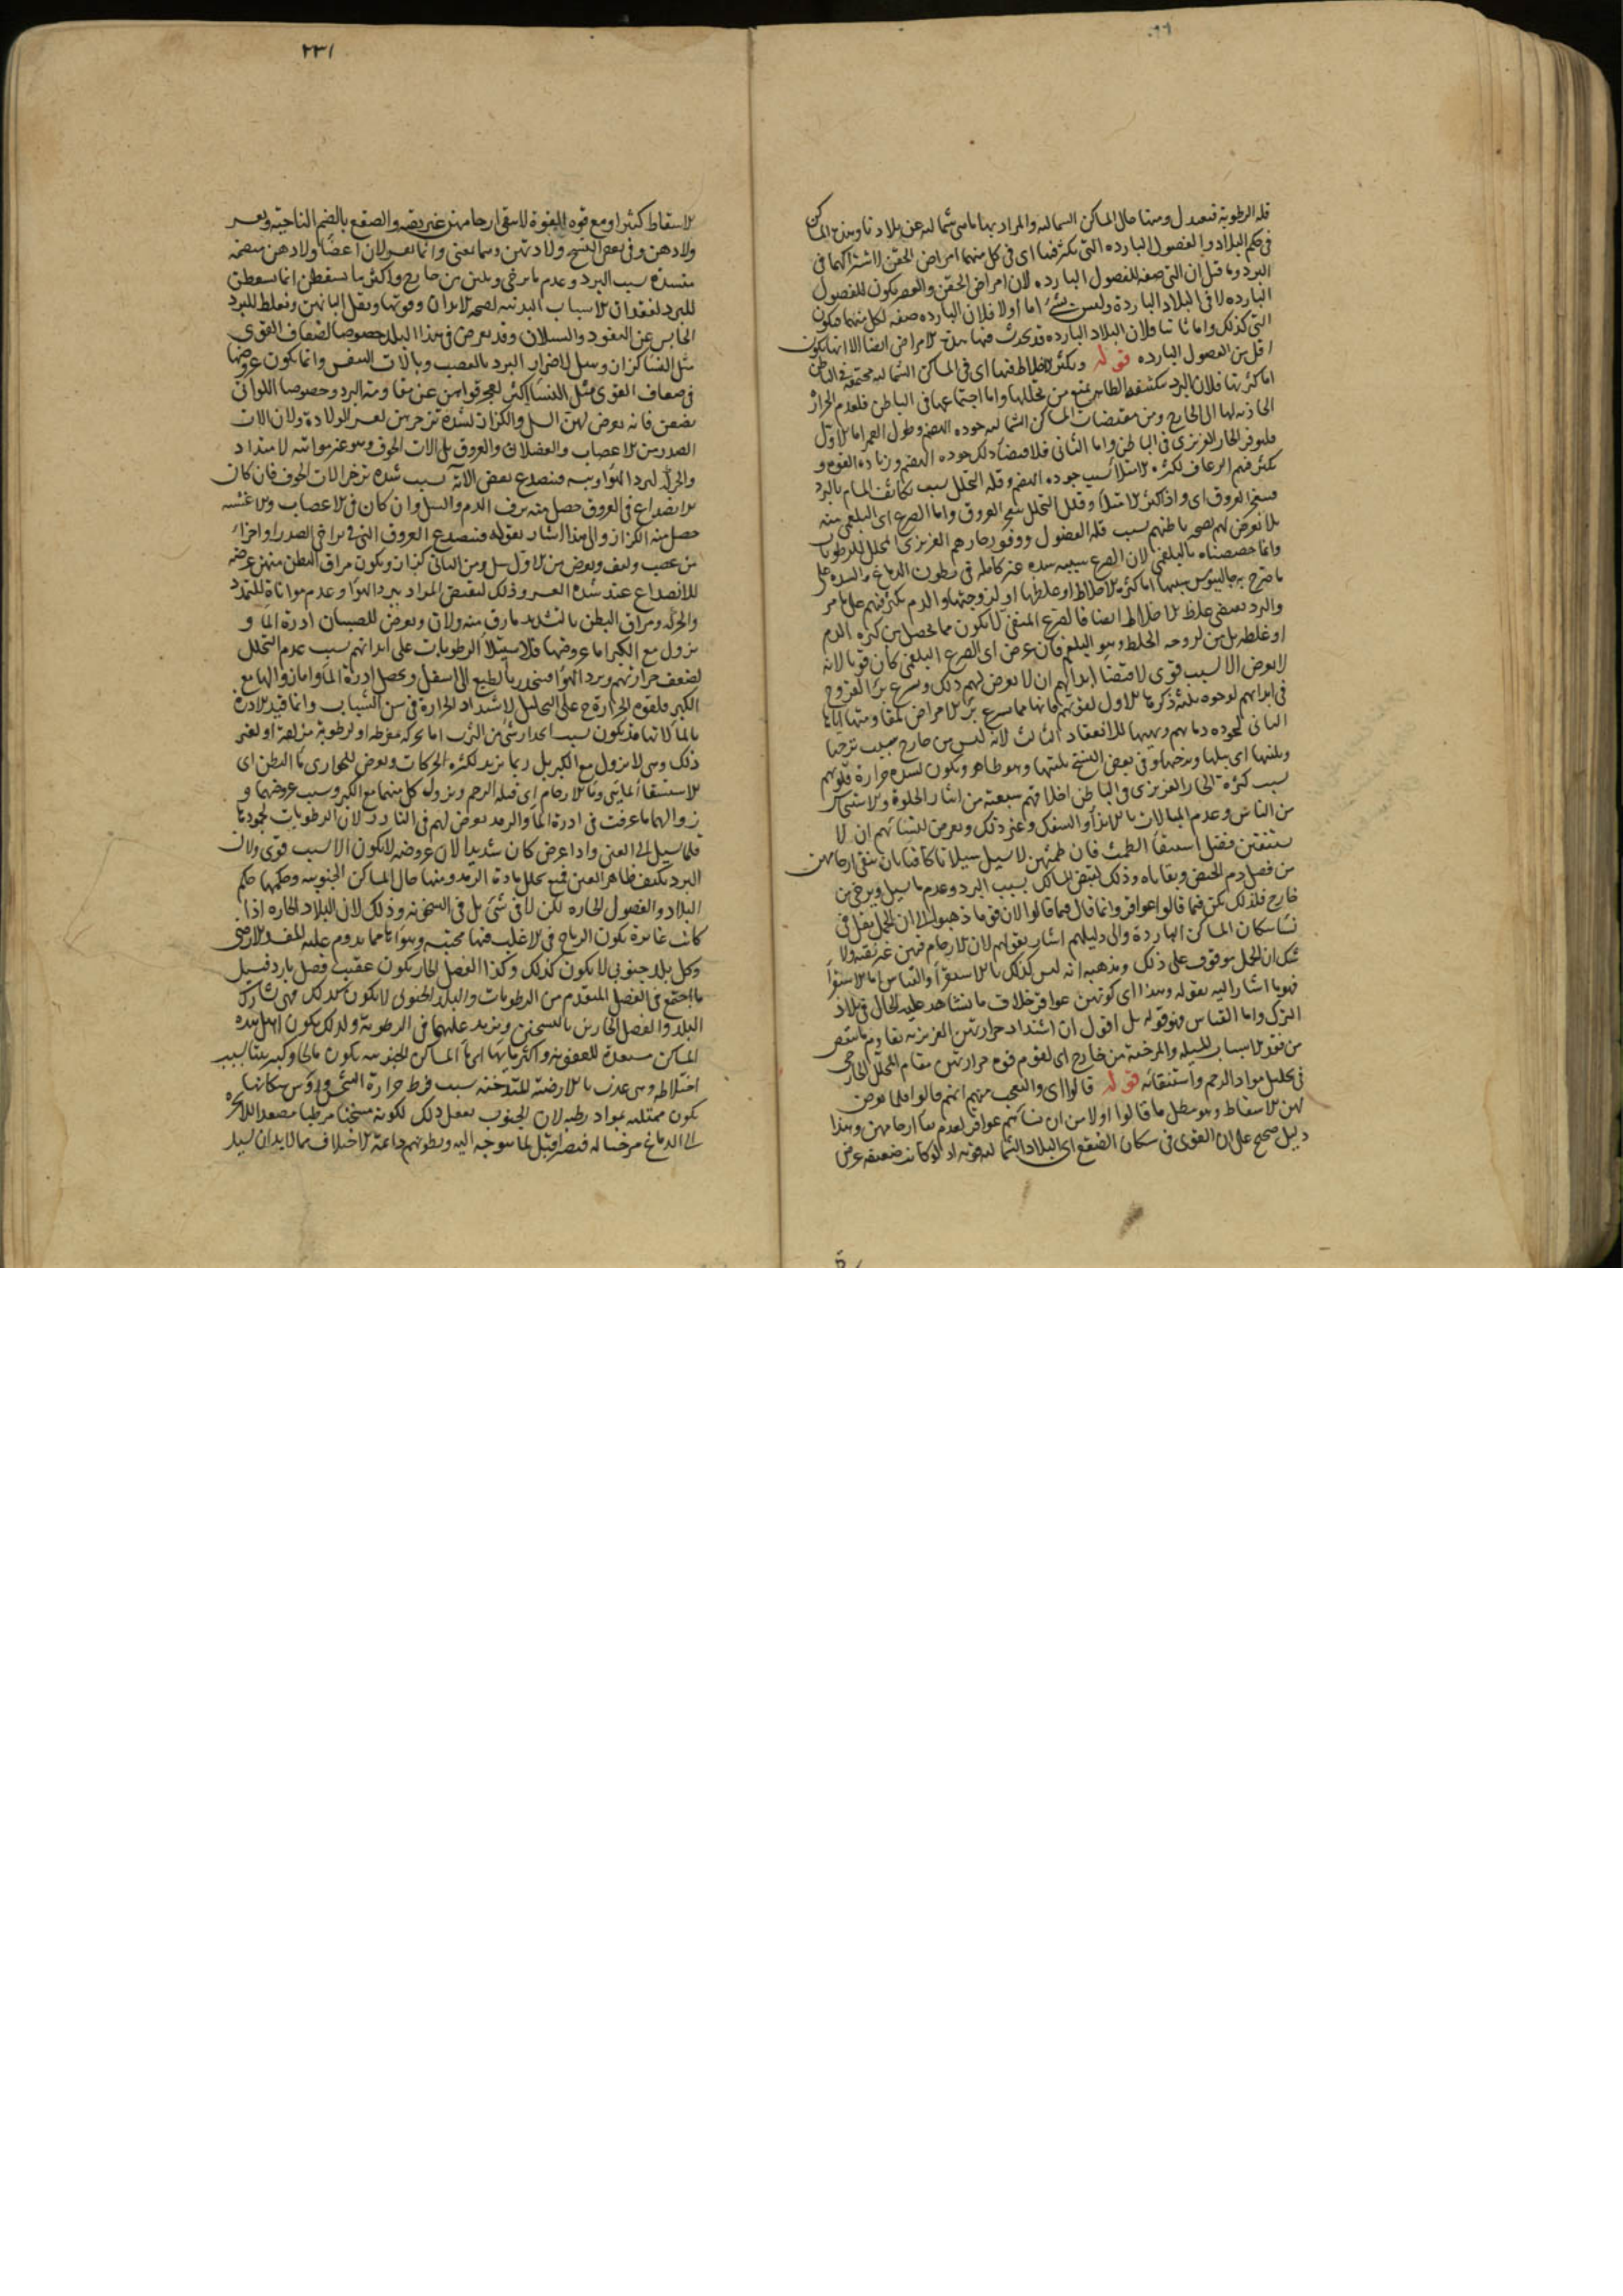 قله الرطوبة فتعدل ومنها حال المساكن الشماليه والمراد بها ما هى شماليه عن بلادنا وهذه المساكن
فى حكم البلاد والفصول البارده التى تكثر فيها اى فى كل منهما امراض الحقن لاشتراكهما فى
البرد وما قيل ان التى صفة للفصول البارده لان امراض الحقن والعصر يكون للفصول
البارده لا فى البلاد الباردة وليس بشئ اما اولا فلان البارده صفه لكل منهما فيكون
التى كذلك واما ثانيا ولان البلاد البارده قد يحدث فيها هذه الامراض ايضا الا انها يكون
اقل من الفصول البارده قوله ويكثر الاخلاط فيها اى فى المساكن الشماليه مجتمعة فى الباطن
اما كثرتها فلان البرد يكثفه الظاهر يمنع من تحللها واما اجتماعها فى الباطن فلعدم الحرارة
الجاذبه لها الى الخارج ومن مقتضيات المساكن الشماليه جوده الهضم وطول العمر اما الاول
فلتوفر الحار الغريزى فى الباطن واما الثانى فلاقتضاء ذلك جوده الهضم وزياده القوه و
يكثر فيهم الرعاف لكثره الامتلاء بسبب جوده الهضم وقله التحلل بسبب تكاثف المسام بالبرد
فتنفتح العروق اى واذا كثر الامتلاء وقلل التحلل تنفتح العروق واما الصرع اى البلغمى منه
فلا يعرض لهم لصحه باطنهم بسبب قله الفضول ووفور حارهم الغريزى المحلل للرطوبات
وانما خصصناه بالبلغمى لان الصرع سببه سده غير كامله فى بطون الدماغ والسده على
ما صرح به جالينوس سببها اما كثرة الاخلاط او غلظها او لزوجتها والدم يكثر فيهم على ما مر
والبرد يقتضى غلظ الاخلاط ايضا فالصرع المنفى لا يكون مما يحصل من كثره الدم
او غلظه بل من لزوجه الخلط وهو البلغم فان عرض اى الصرع البلغمى كان قويا لانه
لا يعرض الا لسبب قوى لاقتضاء ابدانهم ان لا يعرض لهم ذلك ويسرع برء القروح
فى ابدانهم لوجوه ثلثه ذكرها الاول لقوتهم فانها مما يسرع برء الامراض لمقاومتها اياها
الثانى لجوده دمائهم وتهييها للانعقاد الثالث لانه ليس من خارج سبب يرخيها
ويلينها اى يبلها ويرخيها وفى بعض النسخ يلينها وهو ظاهر ويكون لشده حرارة قلوبهم
بسبب كثرة الحار الغريزى فى الباطن اخلاقهم سبعيه من ايثار الخلوة والاستيثار
من الناس وعدم المبالات بالايذاء والسفك وغير ذلك ويعرض لنسائهم ان لا
يستنقين فضل استنقاء الطمث فان طمثهن لا يسيل سيلانا كافيا بان ينقى ارحامهن
من فضل دم الحيض وبقاياه وذلك لقبض المسالك بسبب البرد وعدم ما يسيل ويرخى من
خارج فلذلك يكن فيما قالوا عواقر وانما قال فيما قالوا لان فى ما ذهبوا اليه ان الحمل يقل فى
نساء سكان المساكن الباردة والى دليلهم اشار بقوله لان الارحام فيهن غير نقيه ولا
شك ان الحمل موقوف على ذلك ومذهبه انه ليس كذلك بالاستقراء والقياس اما الاستقراء
فهو ما اشار اليه بقوله وهذا اى كونهن عواقر خلاف ما يشاهد عليه الحال فى بلاد
الترك واما القياس فهو قوله بل اقول ان اشتداد حرارتهن الغريزيه يقاوم ما ينقص
من فقد الاسباب المسيله والمرخيه من خارج اى يقوم قوه حرارتهن مقام المحلل الخارجى
فى تحليل مواد الرحم واستنقائه قوله قالوا اى والعجب منهم انهم قالوا قلما يعرض
لهن الاسقاط وهو مبطل ما قالوا اولا من ان نسائهم عواقر لعدم نقاء ارحامهن وهذا
دليل صحيح على ان القوى فى سكان الصقع اى البلاد الشماليه قويه اذ لو كانت ضعيفه عرض
٢٣١
الاسقاط كثيرا ومع قوه القوة لا يبقى ارحامهن غير نقيه والصقع بالضم الناحية ويعسر
ولادهن وفى بعض النسخ ولادتهن وهما بمعنى وانما يعسر لان اعضاء ولادهن منضمة
منسدة بسبب البرد وعدم ما يرخى ويلين من خارج واكثر ما يسقطن انما يسقطن
للبرد لفقدان الاسباب البدنيه لصحه الابدان وقوتها ويقل البانهن ويغلظ للبرد
الحابس عن النفوذ والسيلان وقد يعرض فى هذا البلد خصوصا لضعاف القوى
مثل النساء كزاز وسل لاضرار البرد بالعصب وبآلات النفس وانما يكون عروضها
فى ضعاف القوى مثل النساء اكثر لعجز قواهن عن مقاومة البرد وخصوصا اللواتى
يضعن فانه يعرض لهن السل والكزاز لشدة تزحرهن لعسر الولادة ولان آلات
الصدر من الاعصاب والعضلات والعروق بل آلات الجوف وهو غير مواتيه لامتداد
والحركه لبرد الهواء ويبسه فينصدع بعض الاته بسبب شده تزحر الات الجوف فان كان
الانصداع فى العروق حصل منه نزف الدم والسل وان كان فى الاعصاب والاغشيه
حصل منه الكزاز والى هذا اشار بقوله فينصدع العروق التى فى نواحى الصدر او اجزاء
من عصب وليف ويعرض من الاول سل ومن الثانى كزاز ويكون مراق البطن منهن عرضه
للانصداع عند شدة العسر وذلك لتقبض المراد ببرد الهواء وعدم مواتاة للتمدد
والحركه ومراق البطن بالتشديد مارق منه ولان ويعرض للصبيان ادرة الماء و
يزول مع الكبر اما عروضها فلاستيلاء الرطوبات على ابدانهم بسبب عدم التحلل
لضعف حرارتهم وبرد الهواء فينحدر بالطبع الى اسفل ويحصل ادرة الماء واما زوالها مع
الكبر فلقوه الحرارة ح على التحليل لاشتداد الحرارة فى سن الشباب وانما قيد الادرة
بالماء لانها قد يكون بسبب انحدار شئ من الثرب اما لحركه مفرطه او لرطوبة مزلقة او لغير
ذلك وهى لا يزول مع الكبر بل ربما يزيد لكثره الحركات ويعرض للجوارى ماء البطن اى
الاستسقاء المائى وماء الارحام اى قيله الرحم ويزول كل منهما مع الكبر وسبب عروضهما و
زوالهما ما عرفت فى ادرة الماء والرمد يعرض لهم فى النادر لان الرطوبات لجمودها
قلما يسيل الى العين واذا عرض كان شديدا لان عروضه لا يكون الا بسبب قوى ولان
البرد يكثف ظاهر العين فيمنع تحلل مادة الرمد ومنها حال المساكن الجنوبيه وحكمها حكم
البلاد والفصول الحاره لكن لا فى شئ بل فى السخونه وذلك لان البلاد الحاره اذا
كانت غائرة يكون الرياح فى الاغلب فيها محتبسه وهواؤها مما يدوم عليه المفسد الارضى
وكل بلد جنوبى لا يكون كذلك وكذا الفصل الحار يكون عقيب فصل بارد فيسيل
ما اجتمع فى الفصل المتقدم من الرطوبات والبلد الجنوبى لا يكون كذلك فهى تشارك
البلد والفصل الحارين بالتسخين ويزيد عليهما فى الرطوبة ولذلك يكون اهل هذه
المساكن مستعدة للعفونه واكثر مياهها اى مياه المساكن الجنوبيه يكون مالحا وكبريتيا بسبب
اختلاطه وهى عذب بالارضية المتدخنه بسبب فرط حرارة الشمس ورؤس سكانها
يكون ممتليه مواد رطبه لان الجنوب يفعل ذلك لكونه مسخنا مرطبا مصعدا للابخره
الى الدماغ مرخيا له فيصير اقبل لما يتوجه اليه وبطونهم دائمة الاختلاف مما لا بد ان يسيل